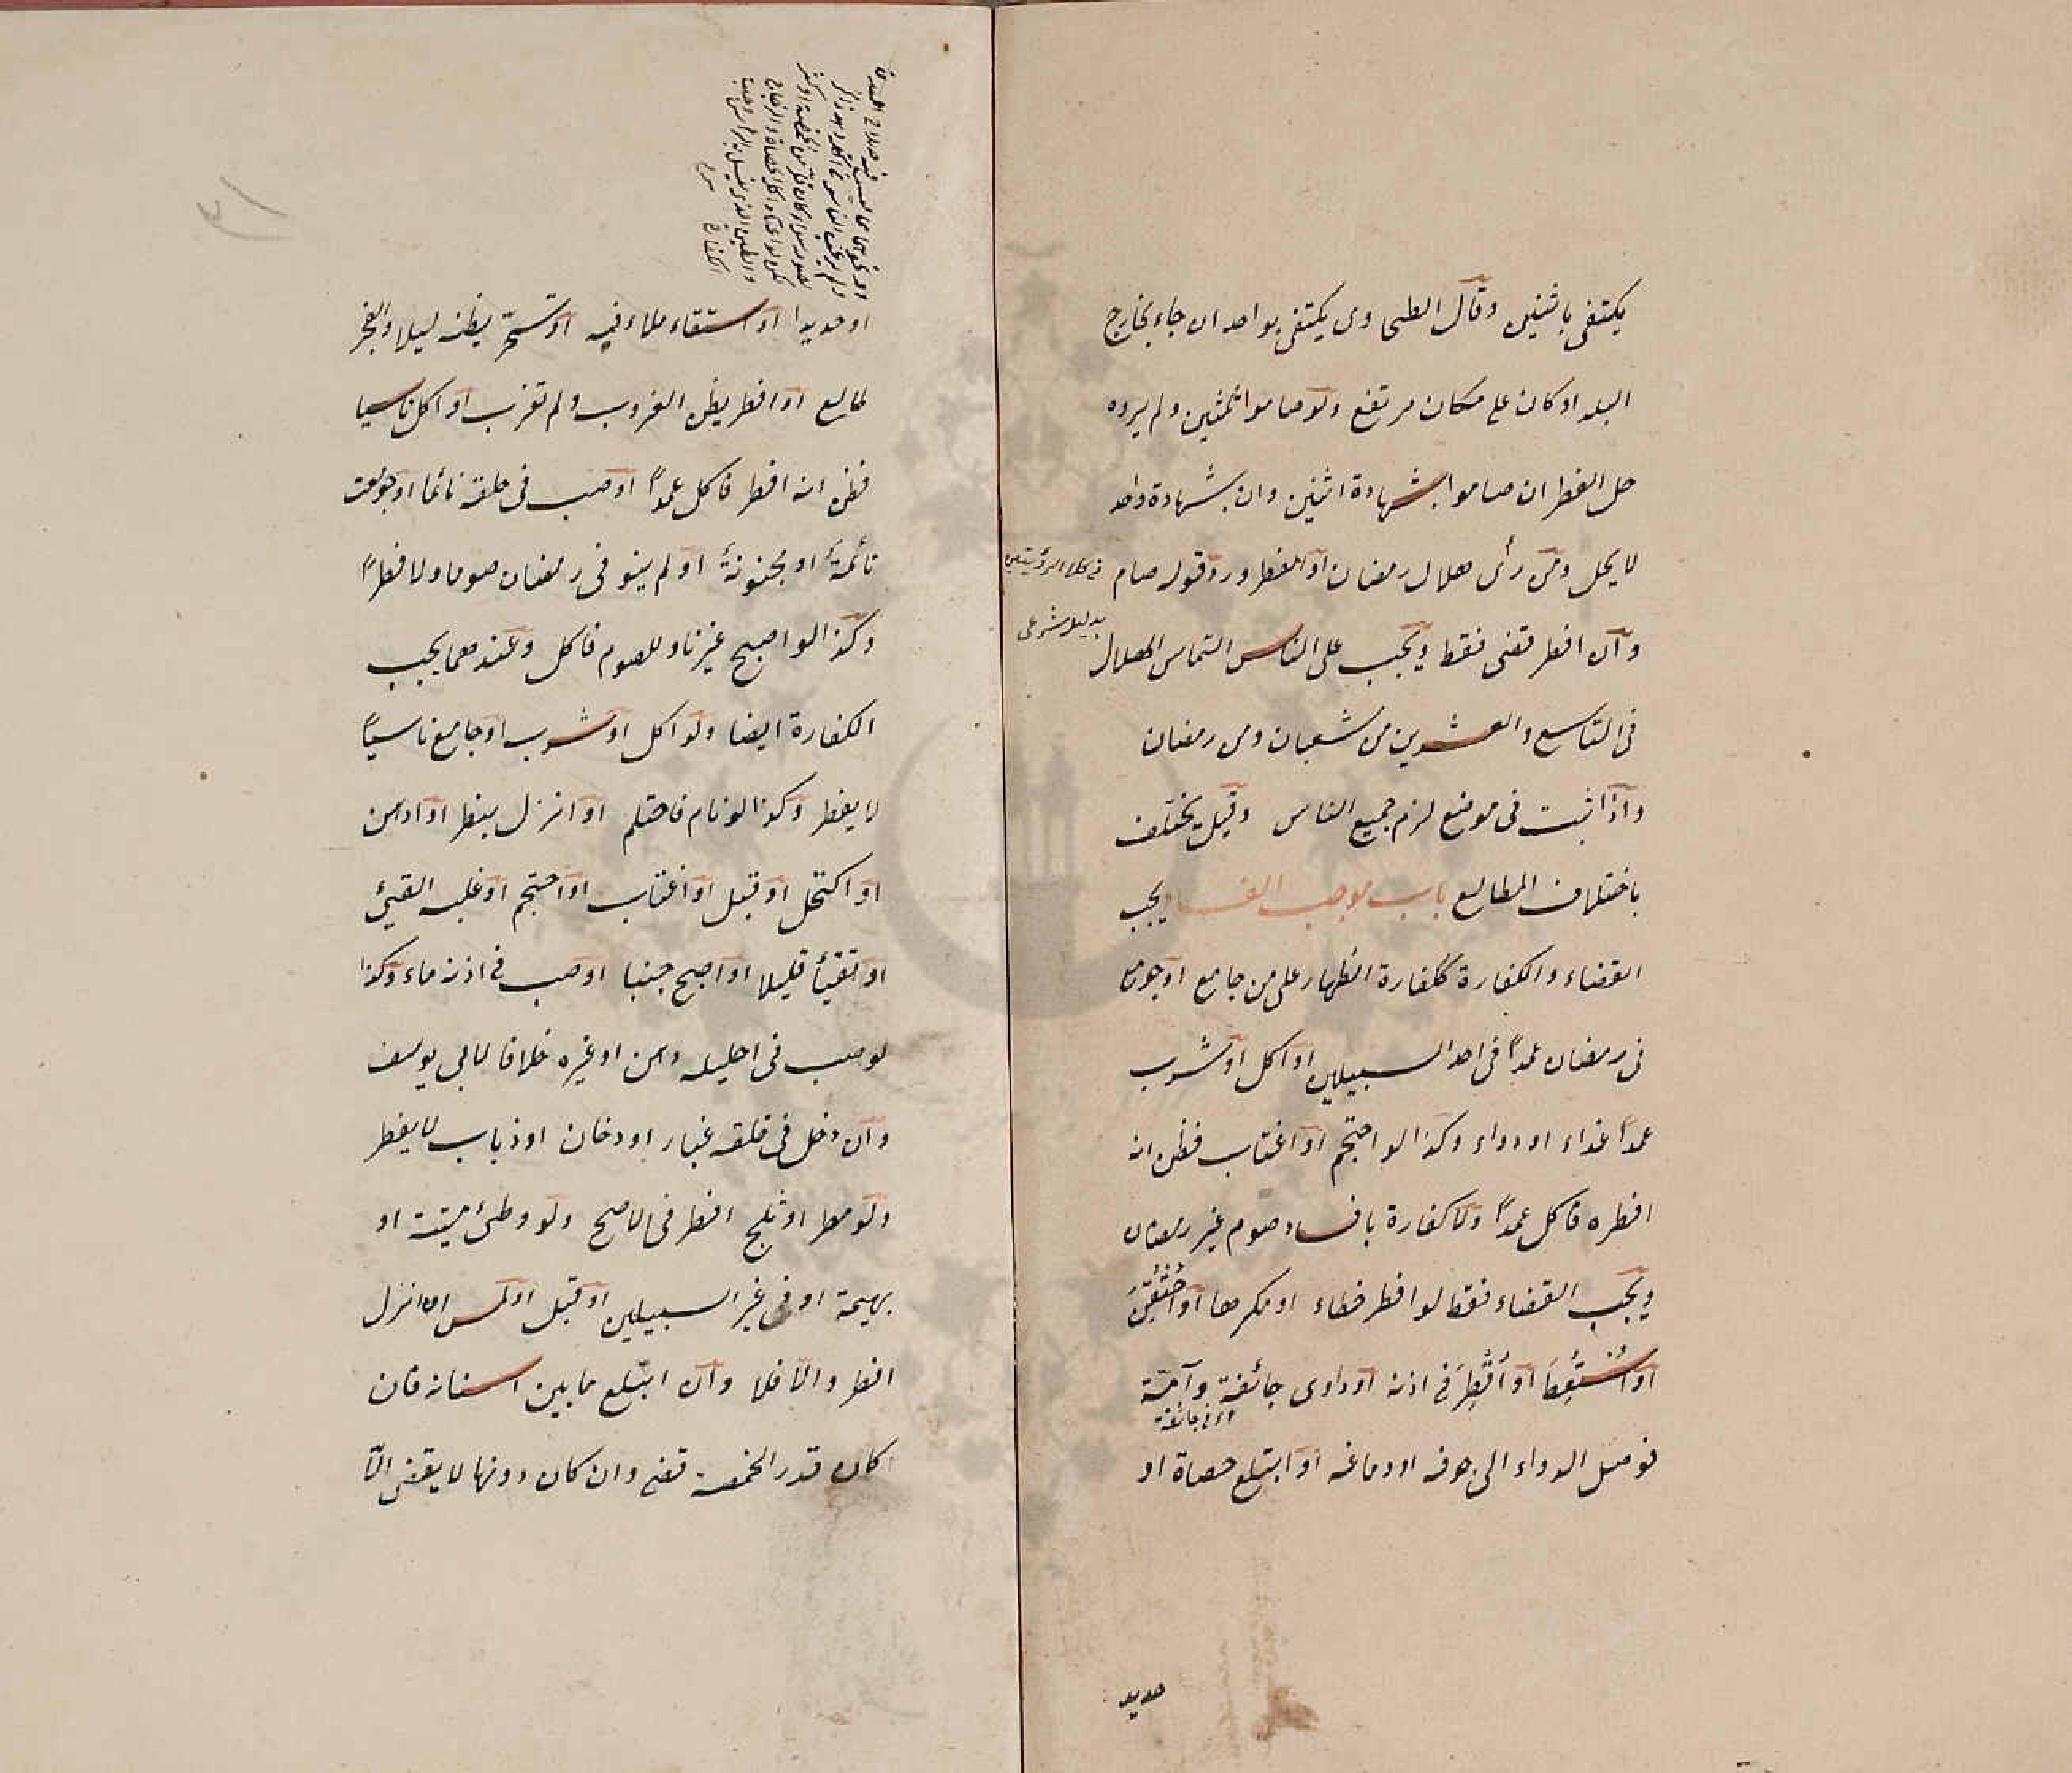 يكتفى باثنين وقال الطحاوى يكتفى بواحد ان جاء بخارج
البلد او كان على مكان مرتفع ولو صاموا ثلثين ولم يروه
حل الفطر ان صاموا بشهادة اثنين وان بشهادة واحد
لا يحل ومن رأى هلال رمضان او الفطر ورد قوله صام
فى كلا الرؤيتين
بدليل شرعى
وان افطر قضى فقط ويجب على الناس التماس الهلال
فى التاسع والعشرين من شعبان ومن رمضان
واذا ثبت فى موضع لزم جميع الناس وقيل يختلف
باختلاف المطالع باب موجب الفساد يجب
القضاء والكفارة ككفارة الظهار على من جامع او جومع
فى رمضان عمداً فى احد السبيلين او اكل او شرب
عمداً غذاء او دواء وكذا لو احتجم او اغتاب فظن انه
افطره فاكل عمداً ولا كفارة بافساد صوم غير رمضان
ويجب القضاء فقط لو افطر خطاء او مكرها او احتُقِنَ
او اُستُعِطَ او أُقْطِرَ فى اذنه او داوى جائفة وآمّة
اى فى جائفة
فوصل الدواء الى جوفه او دماغه او ابتلع حصاة او
حديد
او حديدا او استقاء ملاء فيه او تسحّر يظنه ليلا والفجر
طالع او افطر يظن الغروب ولم تغرب او اكل ناسيا
فظن انه افطر فاكل عمداً او صب فى حلقه نائما او جومعت
نائمةً او مجنونةً او لم ينو فى رمضان صوما ولا فطراً
وكذا لو اصبح غير ناو للصوم فاكل وعندهما يجب
الكفارة ايضا ولو اكل او شرب او جامع ناسياً
لا يفطر وكذا لو نام فاحتلم او انزل بنظر او ادهن
او اكتحل او قبل او اغتاب او احتجم او غلبه القيئ
او تقيأ قليلا او اصبح جنبا او صب فى اذنه ماء وكذا
لو صب فى احليله دهن او غيره خلافا لابى يوسف
وان دخل فى حلقه غبار او دخان او ذباب لا يفطر
ولو مطر او ثلج افطر فى الاصح ولو وطئ ميتة او
بهيمة او فى غير السبيلين او قبل او لمس ان انزل
افطر والّا فلا وان ابتلع ما بين اسنانه فان
كان قدر الحمصة قضى وان كان دونها لا يقضى الّا